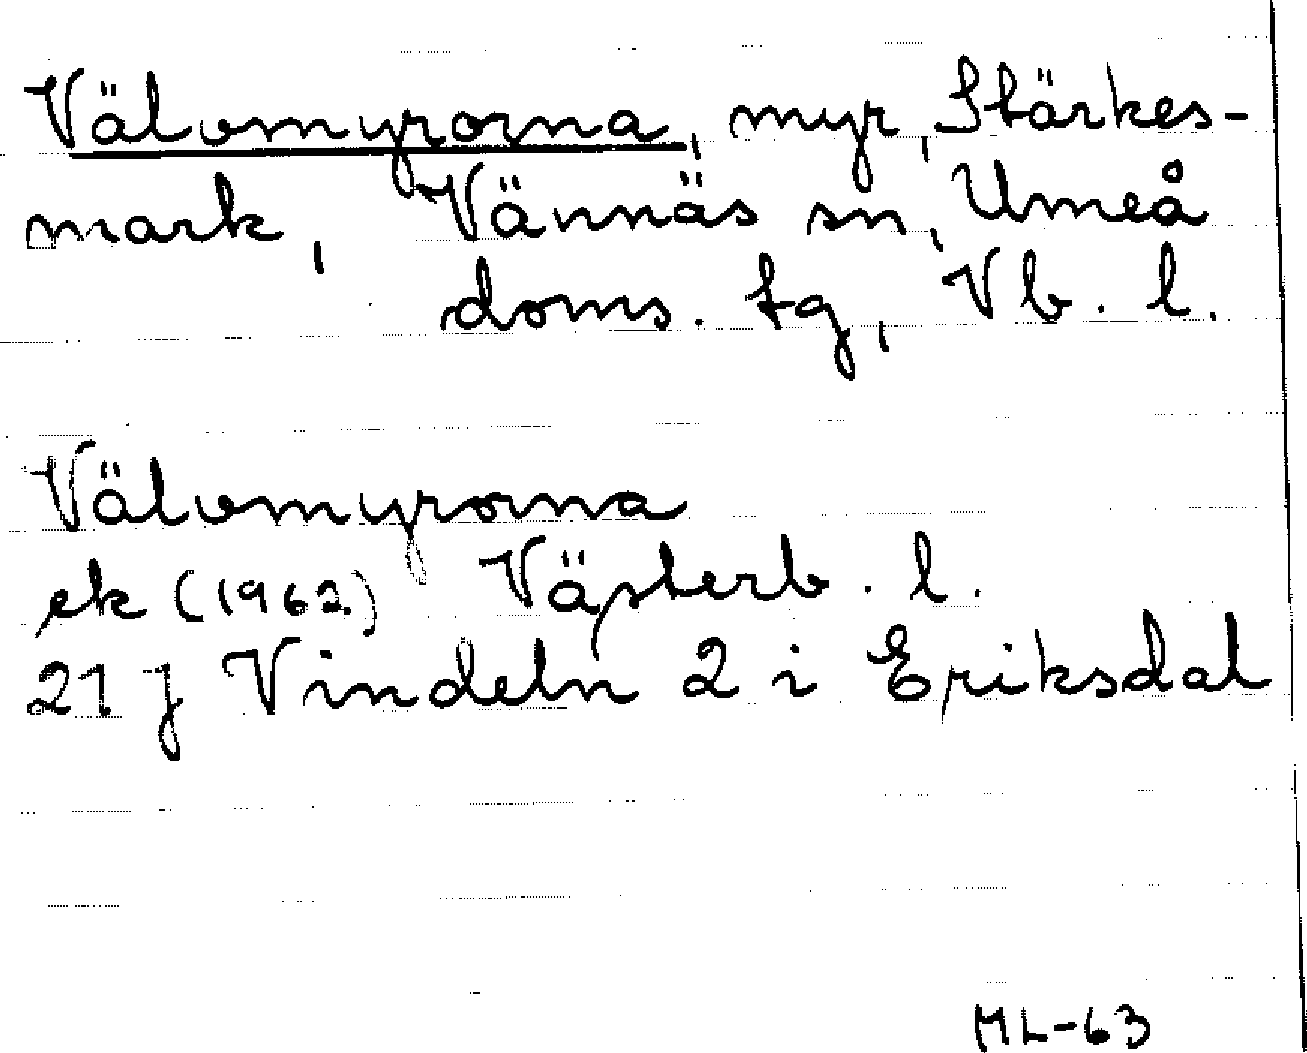 Välvmyrorna, myr, Stärkes-
mark, Vännäs sn, Umeå
doms. tg, Vb. l.
Välvmyrorna
ek (1962) Västerb. l.
21 J Vindeln 2 i Eriksdal
ML-63